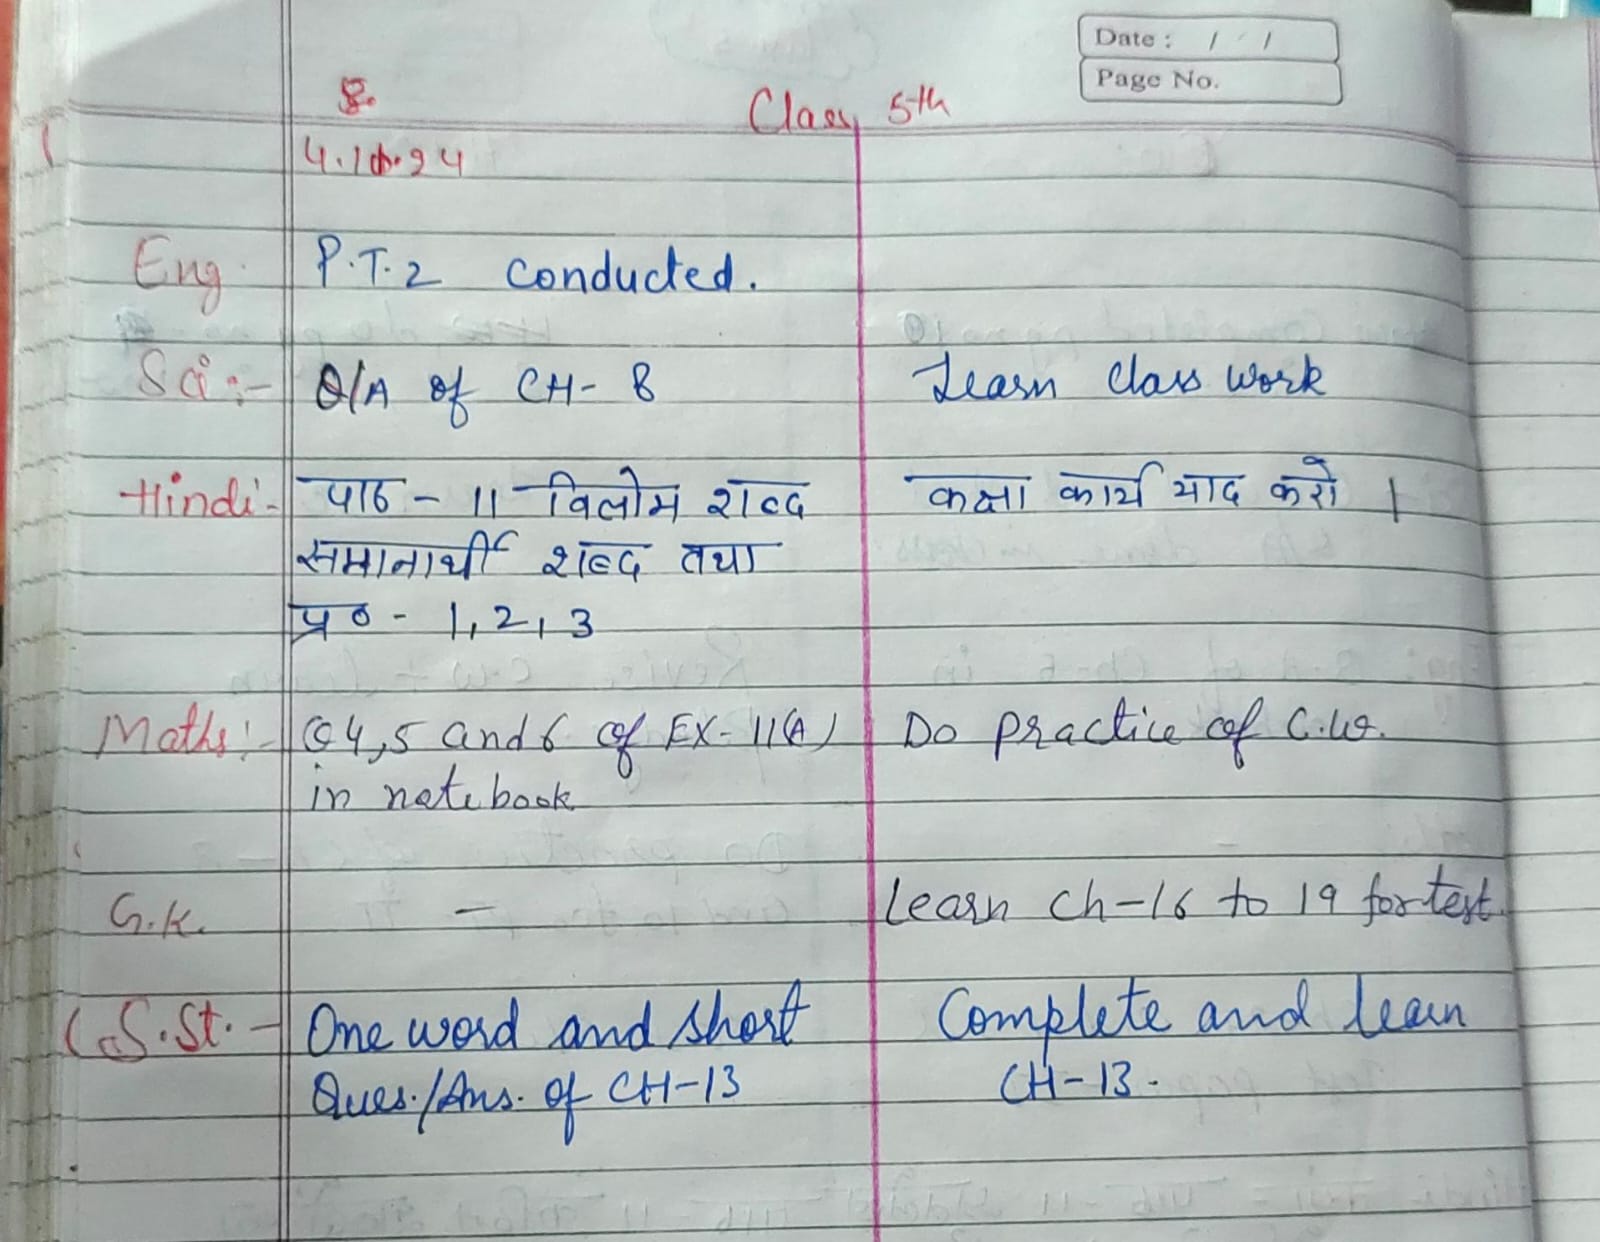 Date : / /
Page No.
Class 5th
4.10.24
Eng. P.T.2 conducted.
Sci :- Q/A of CH- 8 Learn class work
Hindi - पाठ - 11 विलोम शब्द कक्षा कार्य याद करो ।
समानार्थी शब्द तथा
प्र० - 1, 2, 3
Maths :- Q 4, 5 and 6 of EX- 11(A) Do practice of C.W.
in notebook
G.K. - Learn ch-16 to 19 for test.
S.St. - One word and short Complete and learn
Ques./Ans. of CH-13 CH-13.